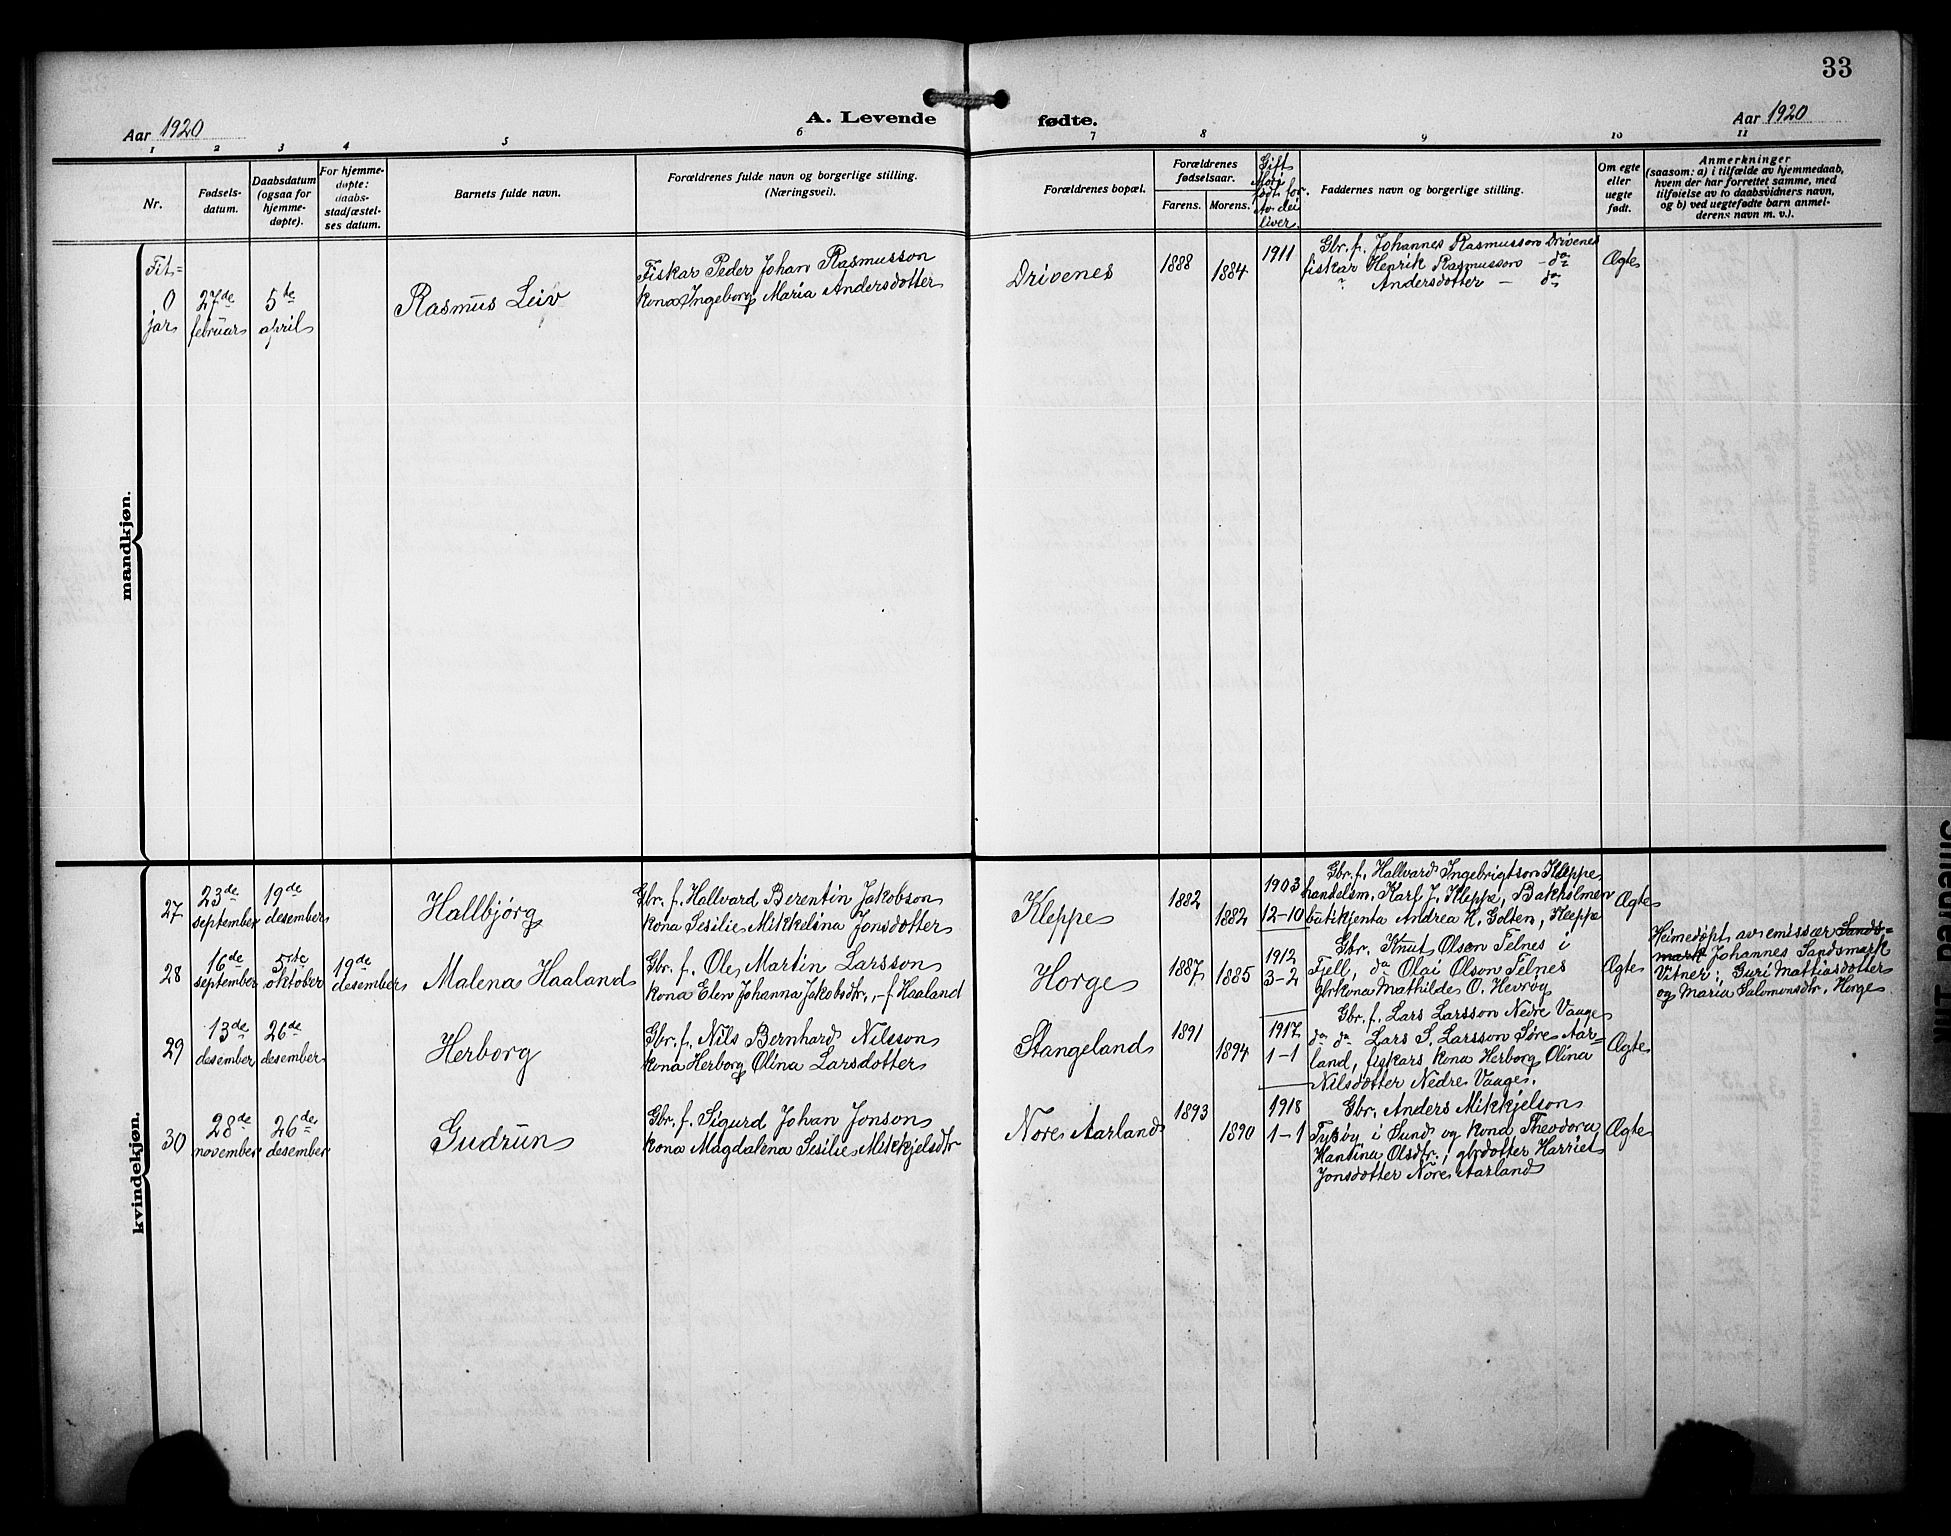 33
A. Levende fødte.
Aar 1920
Aar 1920
1 2 3 4 5 6 7 8 9 10 11
Nr.
Fødsels-
datum.
Daabsdatum
(ogsaa for
hjemme-
døpte).
For hjemme-
døpte:
daabs-
stadfæstel-
ses datum.
Barnets fulde navn.
Forældrenes fulde navn og borgerlige stilling.
(Næringsvei).
Forældrenes bopæl.
Forældrenes
fødselsaar.
Farens.
Morens.
Gift
liver
Faddernes navn og borgerlige stilling.
Om egte
eller
uegte
født.
Anmerkninger
(saasom: a) i tilfælde av hjemmedaab,
hvem der har forrettet samme, med
tilføielse av to daabsvidners navn,
og b) ved uegtefødte barn anmel-
derens navn m. v.).
mandkjøn.
Fit-
0
jar
27de
februar
5te
april
Rasmus Leiv
Fiskar Peder Johan Rasmusson
kona Ingeborg Maria Andersdotter
Drivenes
1888
1884
1911
Gbr. f. Johannes Rasmusson Drivenes
fiskar Henrik Rasmusson - do
" Andersdotter - do
Ægte
kvindekjøn.
27
23de
september
19de
desember
Hallbjørg
Gbr. f. Hallvard Berentin Jakobson
kona Sesilie Mikkelina Jonsdotter
Kleppe
1882
1882
1903
12-10
Gbr. f. Hallvard Ingebrigtson Kleppe,
handelsm. Karl J. Kleppe, Bakholmen
butikjenta Andrea H. Golten, Kleppe
Ægte
28
16de
september
5te
oktober
19de
desember
Malena Haaland
Gbr. f. Ole Martin Larsson
kona Elen Johanna Jakobsdtr., - f. Haaland
Horge
1887
1885
1912
3-2
Gbr. Knut Olson Telnes i
Fjell, do Olai Olson Telnes
gbrkona Mathilde O. Hevrøy
Ægte
Heimedøpt av emissær Sands-
mark Johannes Sandsmark
Vitner: Guri Mattiasdotter
og Maria Salomonsdtr. Horge
29
13de
desember
26de
desember
Herborg
Gbr. f. Nils Bernhard Nilsson
kona Herborg Olina Larsdotter
Stangeland
1891
1894
1917
1-1
Gbr. f. Lars Larsson Nedre Vaage
do do Lars S. Larsson Søre Aar-
land, fiskars kona Herborg Olina
Nilsdotter Nedre Vaage.
Ægte
30
28de
november
26de
desember
Gudrun
Gbr. f. Sigurd Johan Jonson
kona Magdalena Sesilie Mikkjelsdtr
Nore Aarland
1893
1890
1918
1-1
Gbr. Anders Mikkjelson
Tyssøy i Sund og kona Theodora
Hantina Olsdtr., gbrdotter Harriet
Jonsdotter Nore Aarland
Ægte